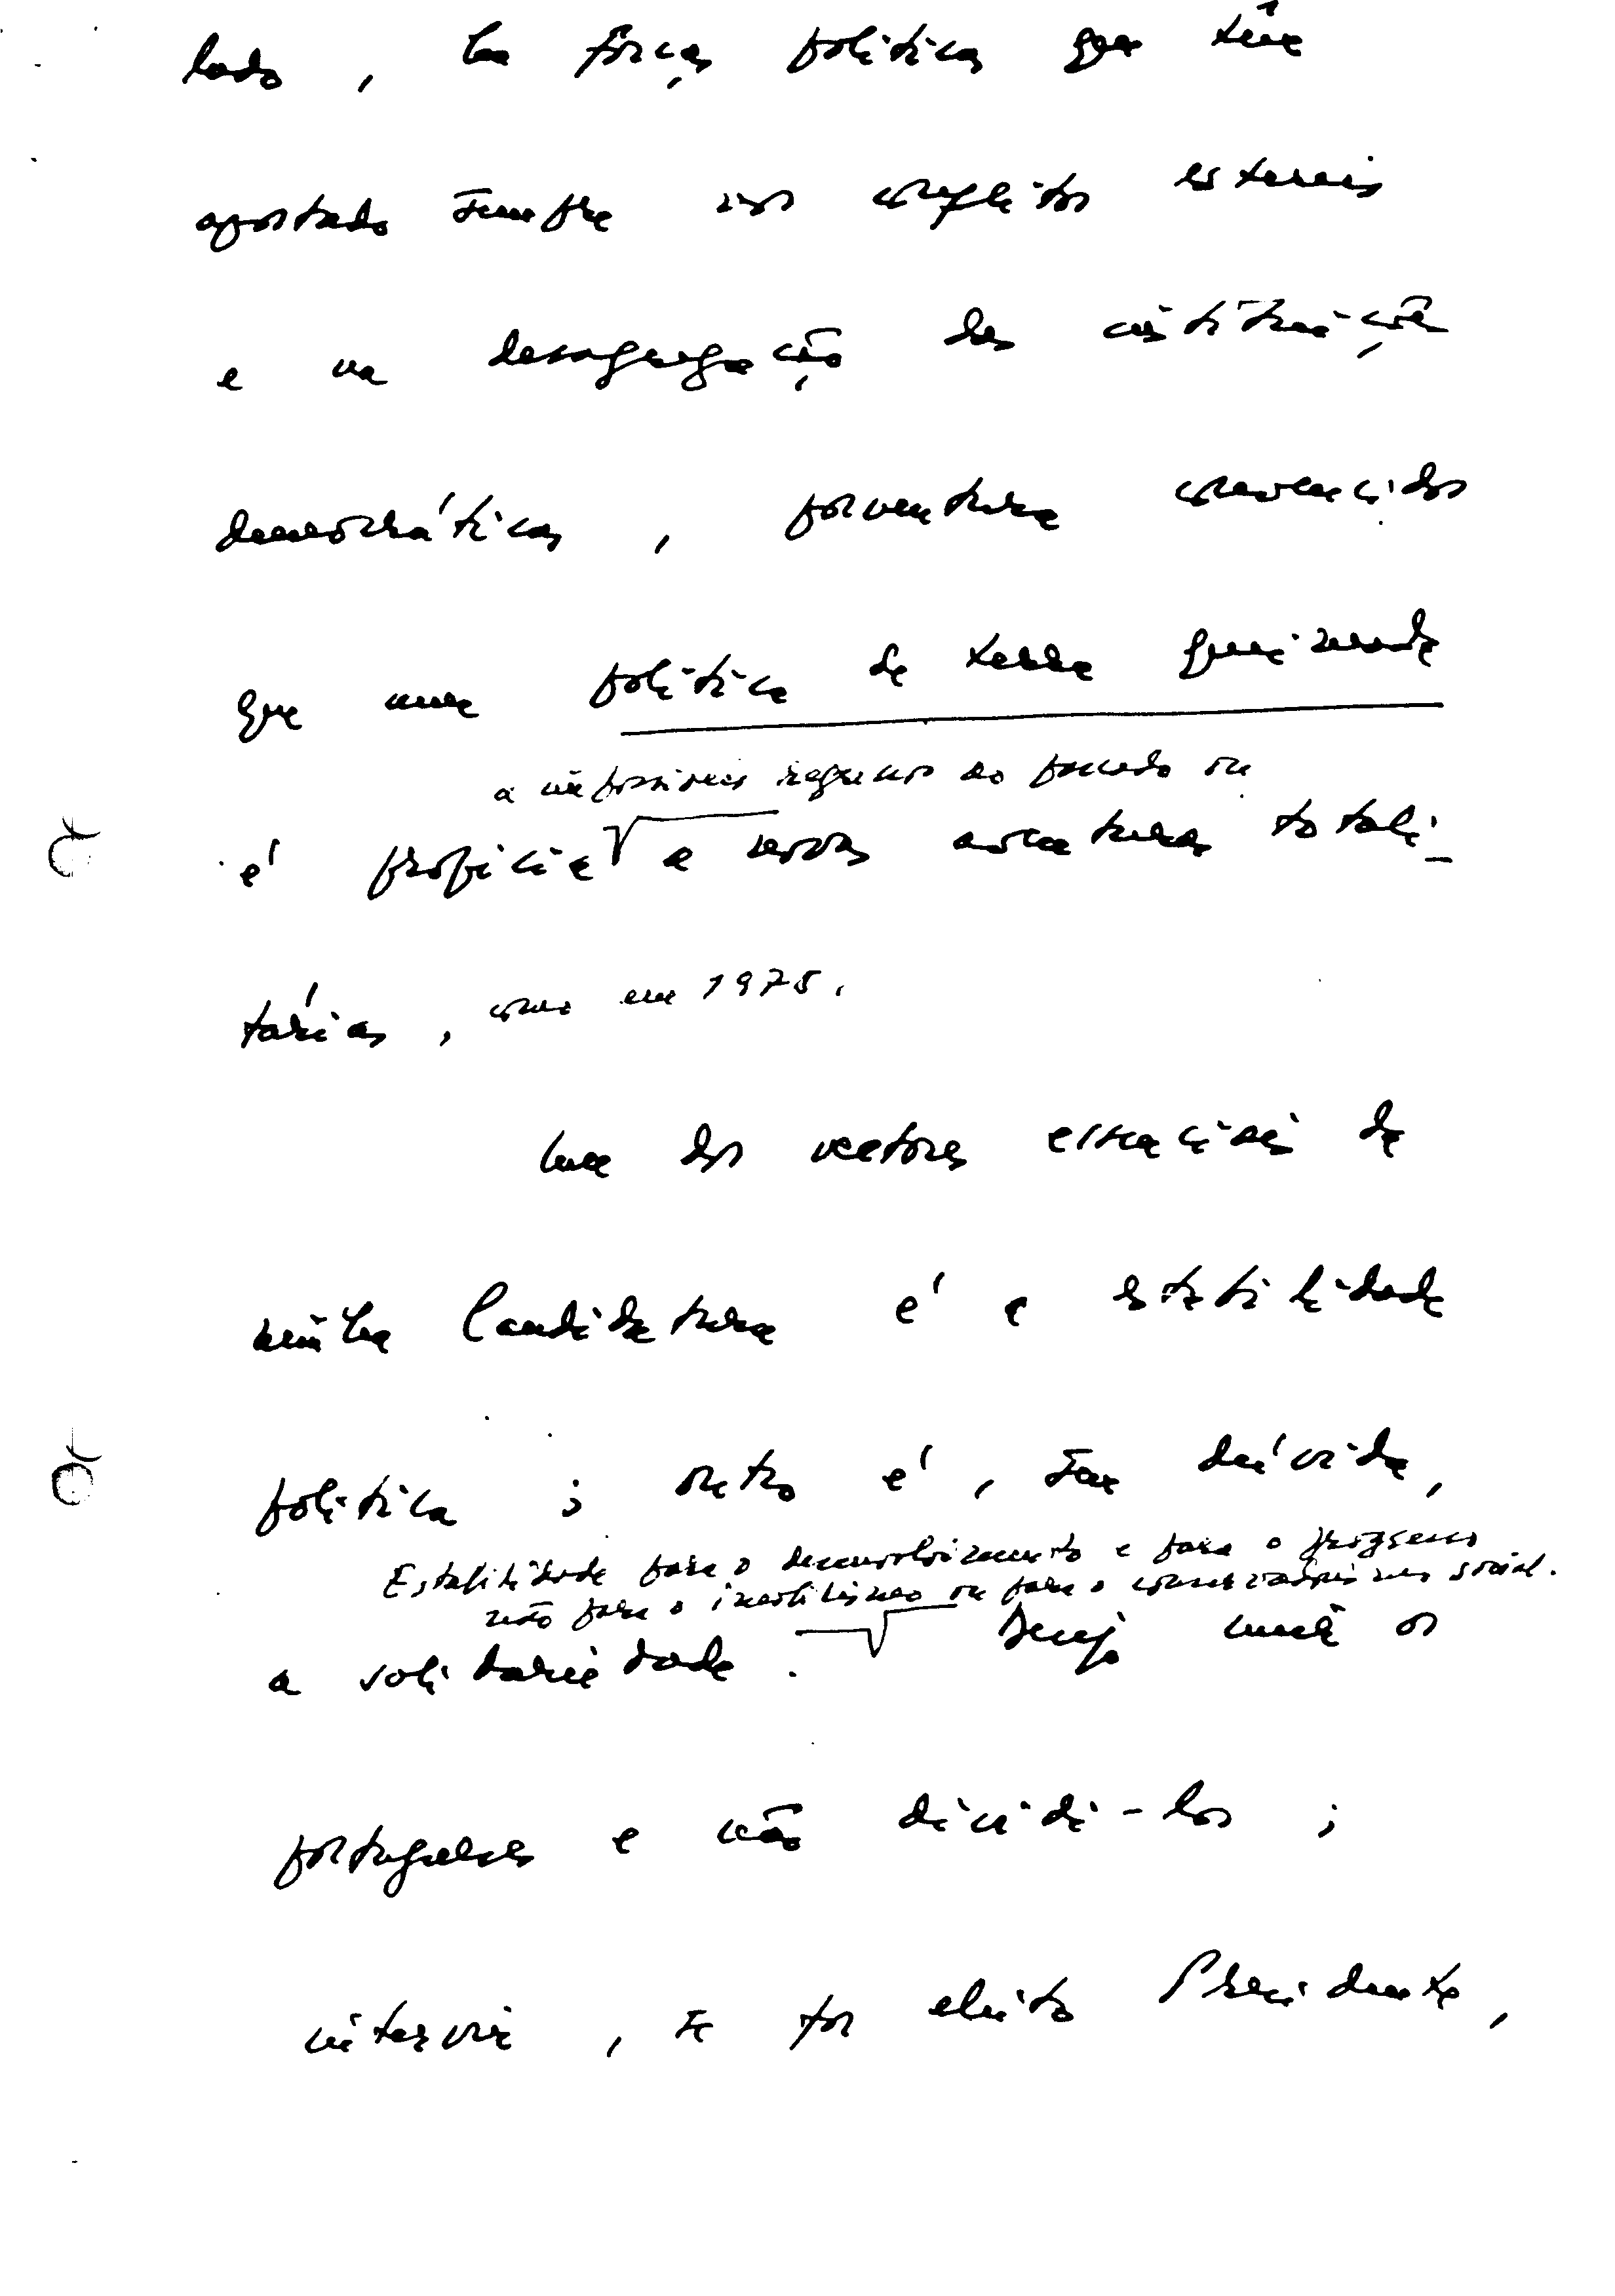 lado, há forças políticas que têm
apostado sempre nos conflitos estéreis
e na desagregação das instituições
democráticas, porventura convencidos
que uma política de terra queimada
a impossíveis regressos ao passado ou
é propícia a novas aventuras totali-
tárias, como em 1975.
Um dos vectores essenciais da
minha Candidatura é a estabilidade
política; outro é, sem dúvida,
Estabilidade para o desenvolvimento e para o progresso
não para o imobilismo ou para o conservadorismo social.
a solidariedade. Desejo unir os
portugueses e não dividi-los;
intervir, se for eleito Presidente,